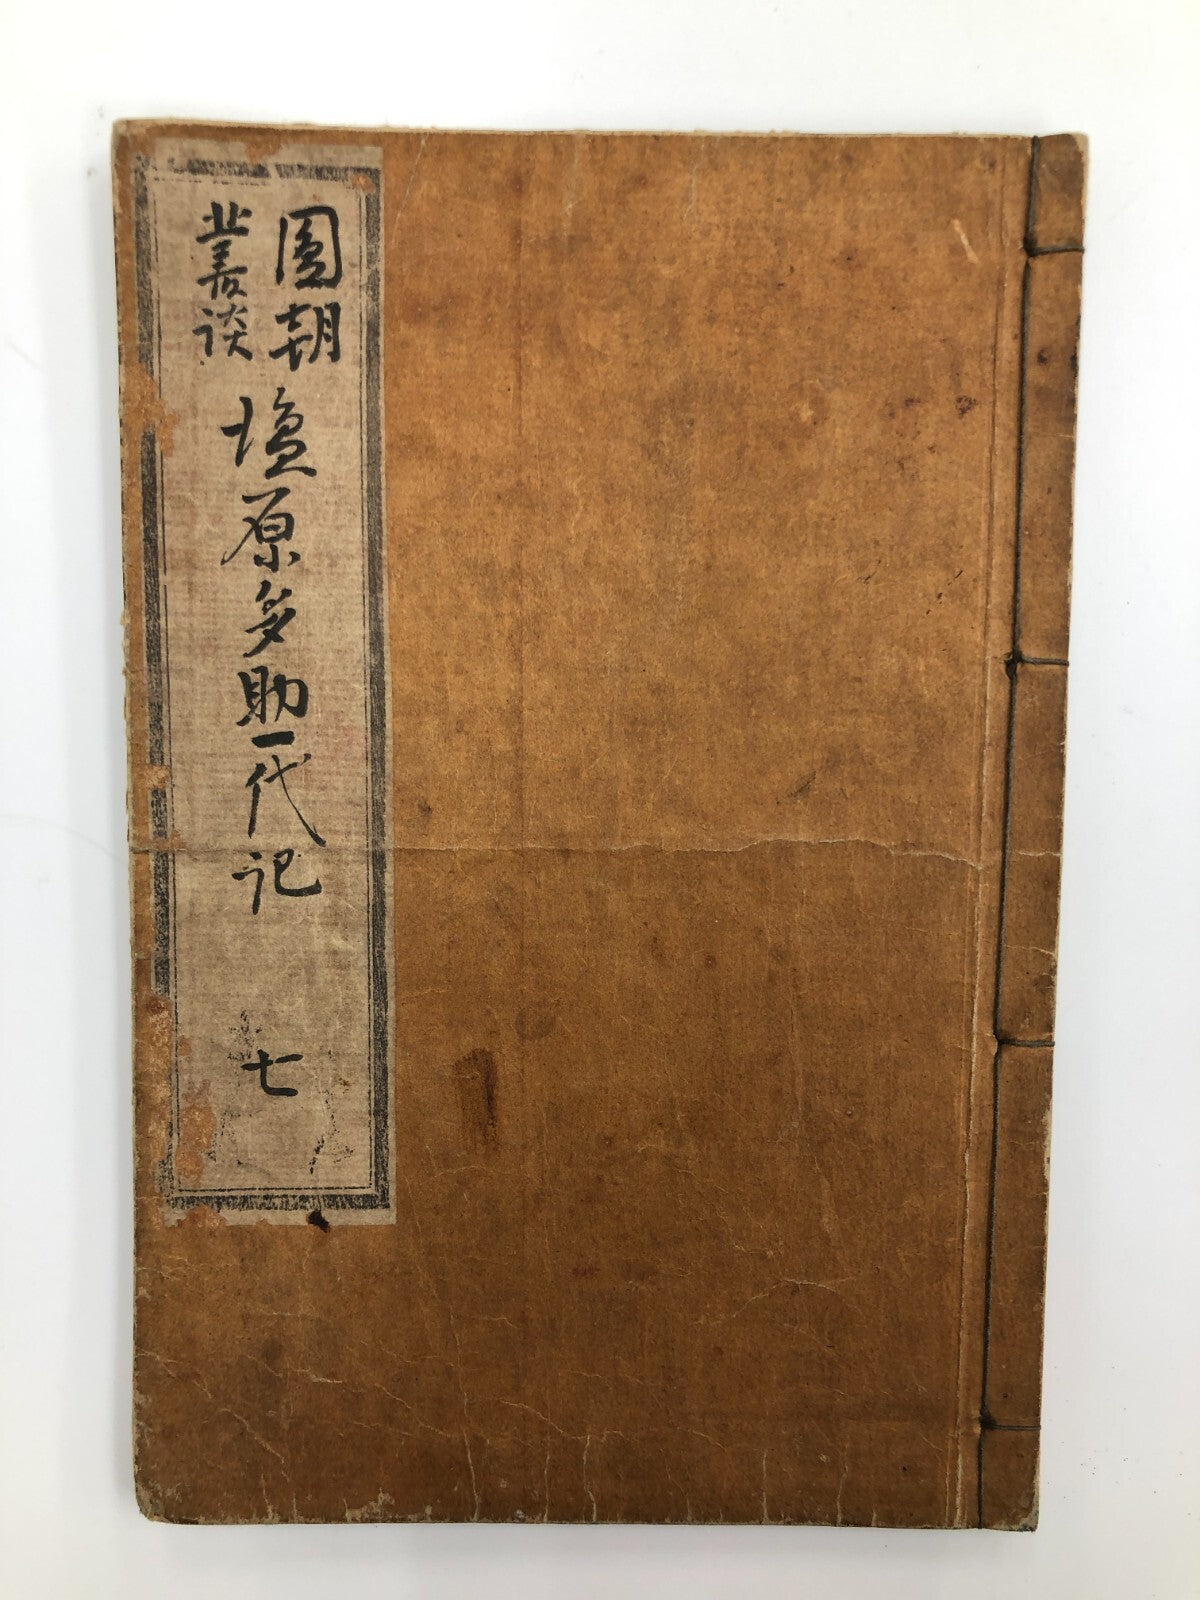 圓朝
叢談
塩原多助一代記
七